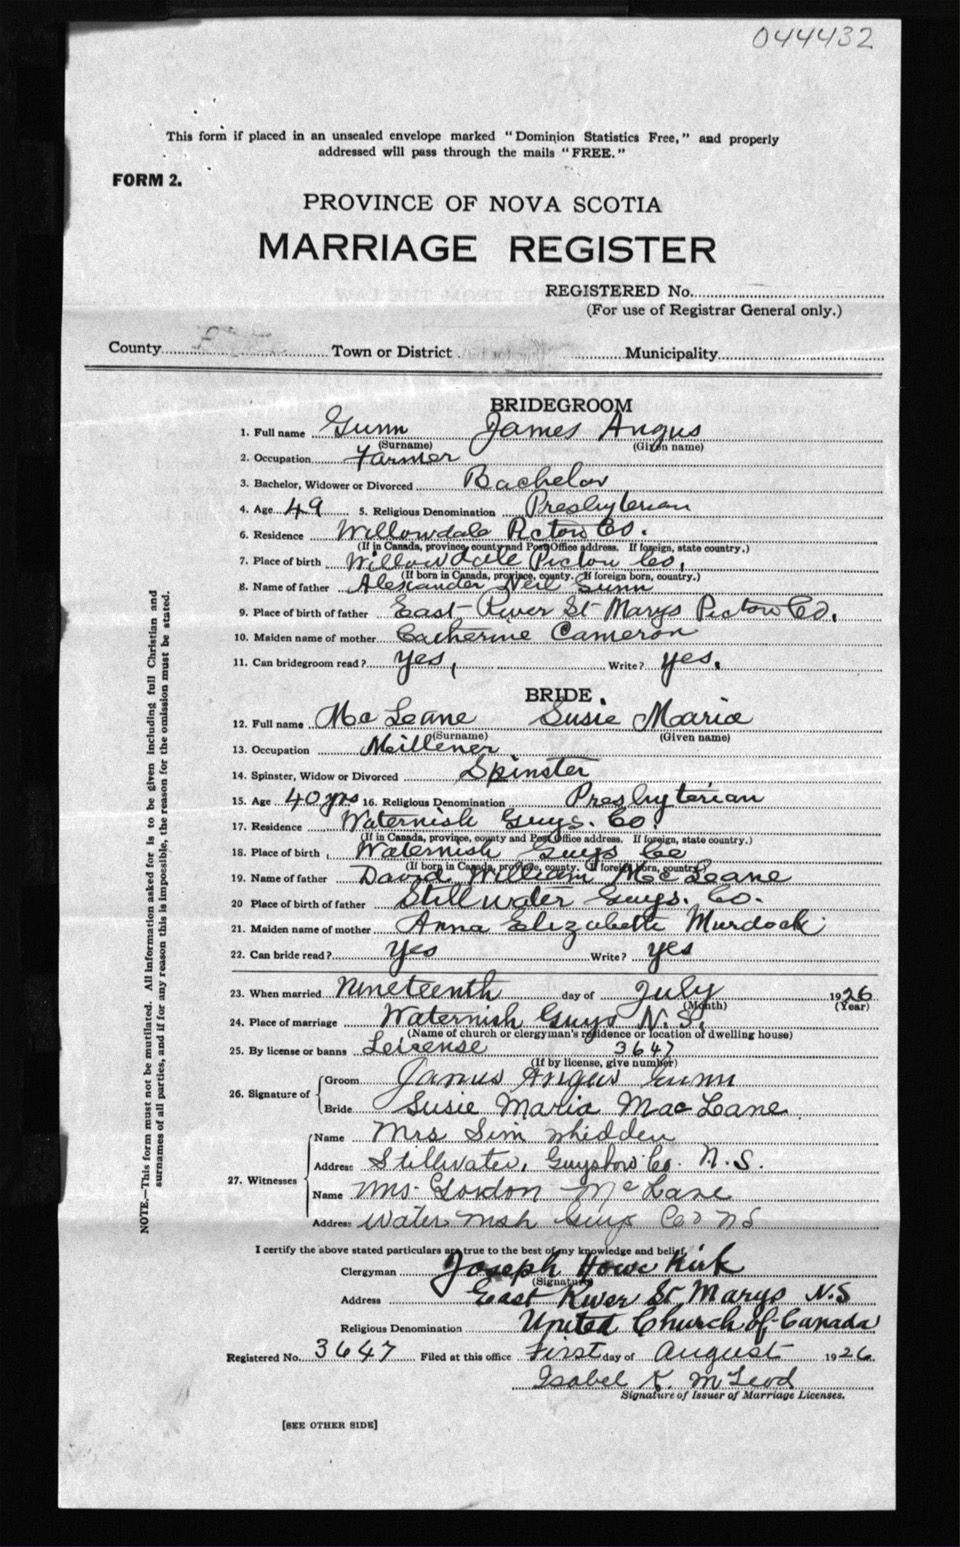 044432
This form if placed in an unsealed envelope marked "Dominion Statistics Free," and properly
addressed will pass through the mails "FREE."
FORM 2.
PROVINCE OF NOVA SCOTIA
MARRIAGE REGISTER
REGISTERED No.
(For use of Registrar General only.)
County Town or District Municipality
BRIDEGROOM
1. Full name Gunn James Angus
(Surname) (Given name)
2. Occupation Farmer
3. Bachelor, Widower or Divorced Bachelor
4. Age 49 5. Religious Denomination Presbyterian
6. Residence Willowdale Pictou Co.
(If in Canada, province, county and Post Office address. If foreign, state country.)
7. Place of birth Willowdale Pictou Co,
(If born in Canada, province, county. If foreign born, country.)
8. Name of father Alexander Neil Gunn
9. Place of birth of father East River St Marys Pictou Co,
10. Maiden name of mother Catherine Cameron
11. Can bridegroom read? yes, Write? yes.
BRIDE.
12. Full name McLeane Susie Maria
(Surname) (Given name)
13. Occupation Meillener
14. Spinster, Widow or Divorced Spinster
15. Age 40 yrs 16. Religious Denomination Presbyterian
17. Residence Waternish Guys. Co.
(If in Canada, province, county and Post Office address. If foreign, state country.)
18. Place of birth Waternish Guys Co
(If born in Canada, province, county. If foreign born, country)
19. Name of father David William McLeane
20 Place of birth of father Stillwater Guys. Co.
21. Maiden name of mother Anna Elizabeth Murdock
22. Can bride read? Yes Write? yes
23. When married Nineteenth day of July 1926
(Month) (Year)
24. Place of marriage Waternish Guys N.S.
(Name of church or clergyman's residence or location of dwelling house)
25. By license or banns Leicense 3647
(If by license, give number)
26. Signature of Groom James Angus Gunn
Bride Susie Maria MacLeane
27. Witnesses Name Mrs Sim Whidden
Address Stillwater, Guysboro Co. N.S.
Name Mrs. Gordon McLane
Address Waternish Guys Co NS
I certify the above stated particulars are true to the best of my knowledge and belief,
Clergyman Joseph Howe Kirk
(Signature)
Address East River St Marys N.S
Religious Denomination United Church of Canada
Registered No. 3647 Filed at this office First day of August 1926
Isabel K. McLeod
Signature of Issuer of Marriage Licenses.
[SEE OTHER SIDE]
NOTE.—This form must not be mutilated. All information asked for is to be given including full Christian and
surnames of all parties, and if for any reason this is impossible, the reason for the omission must be stated.